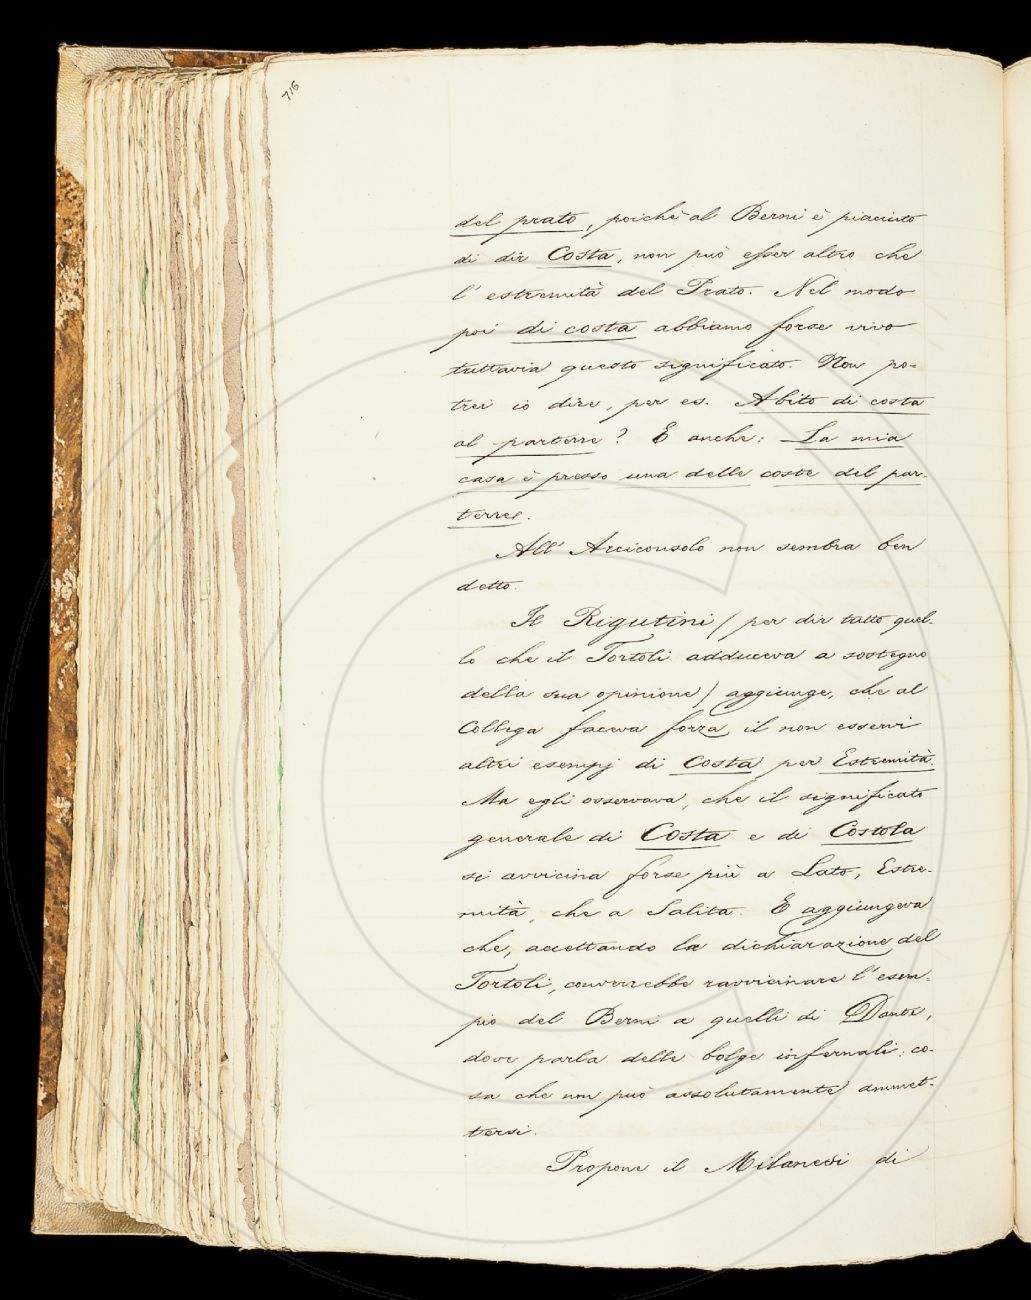 716
del prato, poichè al Berni è piaciuto
di dir Costa, non può esser altro che
l' estremità del Prato. Nel modo
poi di costa abbiamo forse vivo
tuttavia questo significato. Non po-
trei io dire, per es. Abito di costa
al parterre? E anche: La mia
casa è presso una delle coste del par-
terre.
All' Arciconsolo non sembra ben
detto.
Il Rigutini / per dir tutto quel-
lo che il Tortoli adduceva a sostegno
della sua opinione / aggiunge, che al
Collega faceva forza il non esservi
altri esempj di Costa per Estremità.
Ma egli osservava, che il significato
generale di Costa e di Costola
si avvicina forse più a Lato, Estre-
mità, che a Salita. E aggiungeva
che, accettando la dichiarazione del
Tortoli, converrebbe ravvicinare l' esem-
pio del Berni a quelli di Dante,
dove parla delle bolge infernali: co-
sa che non può assolutamente ammet-
tersi.
Propone il Milanesi di